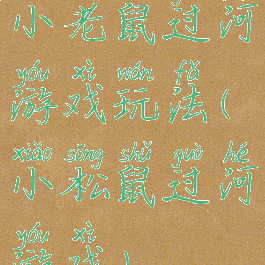 小老鼠过河
yóu xì wán fǎ
游戏玩法(
xiǎo sōng shǔ guò hé
小松鼠过河
yóu xì
游戏)